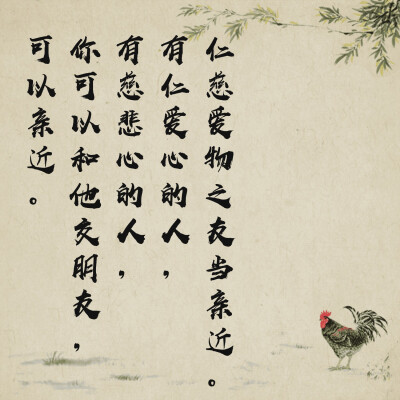 仁慈爱物之友当亲近。
有仁爱心的人，
有慈悲心的人，
你可以和他交朋友，
可以亲近。